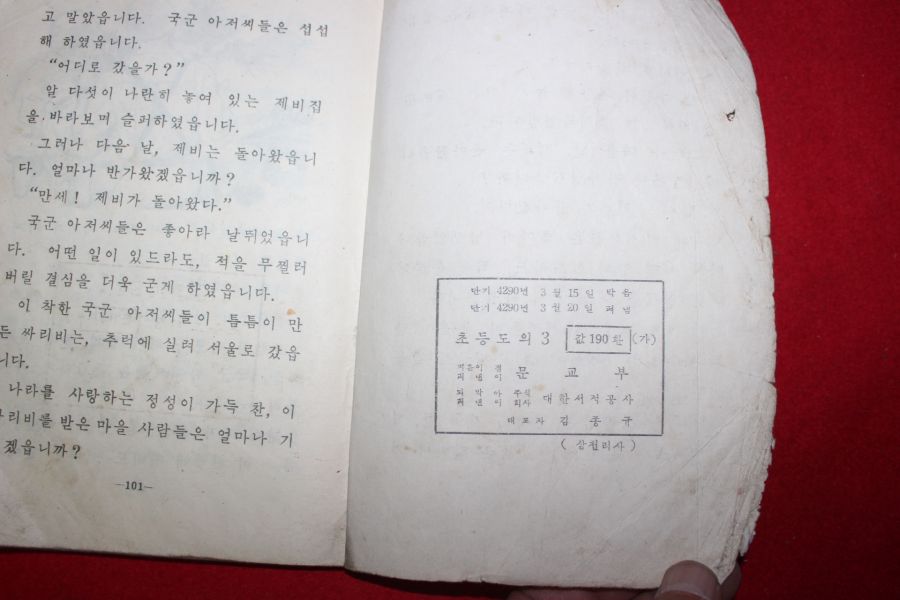 고 말았읍니다. 국군 아저씨들은 섭섭
해 하였읍니다.
“어디로 갔을가?”
알 다섯이 나란히 놓여 있는 제비집
을 바라보며 슬퍼하였읍니다.
그러나 다음 날, 제비는 돌아왔읍니
다. 얼마나 반가왔겠읍니까?
“만세! 제비가 돌아왔다.”
국군 아저씨들은 좋아라 날뛰었읍니
다. 어떤 일이 있드라도, 적을 무찔러
버릴 결심을 더욱 굳게 하였읍니다.
이 착한 국군 아저씨들이 틈틈이 만
든 싸리비는, 추럭에 실려 서울로 갔읍
니다.
나라를 사랑하는 정성이 가득 찬, 이
싸리비를 받은 마을 사람들은 얼마나 기
겠읍니까?
—101—
단기 4290년 3월 15일 박음
단기 4290년 3월 20일 펴냄
초등도의 3 값 190환 (가)
지은이 겸 펴낸이 문교부
박아 펴낸이 주식 회사 대한서적공사
대표자 김종규